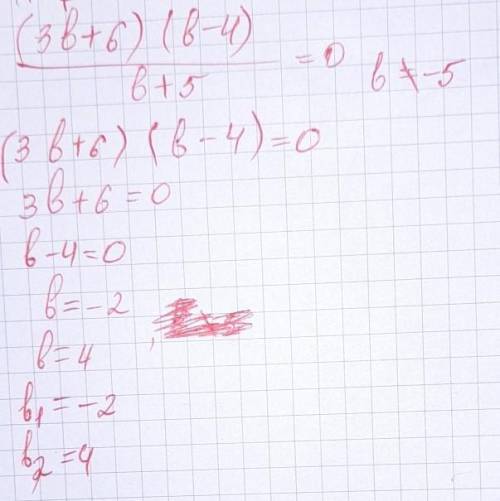 (3b+6) (b-4)
b+5
= 0
b ≠ -5
(3b+6) (b-4)=0
3b+6=0
b-4=0
b=-2
b=4
b₁=-2
b₂=4